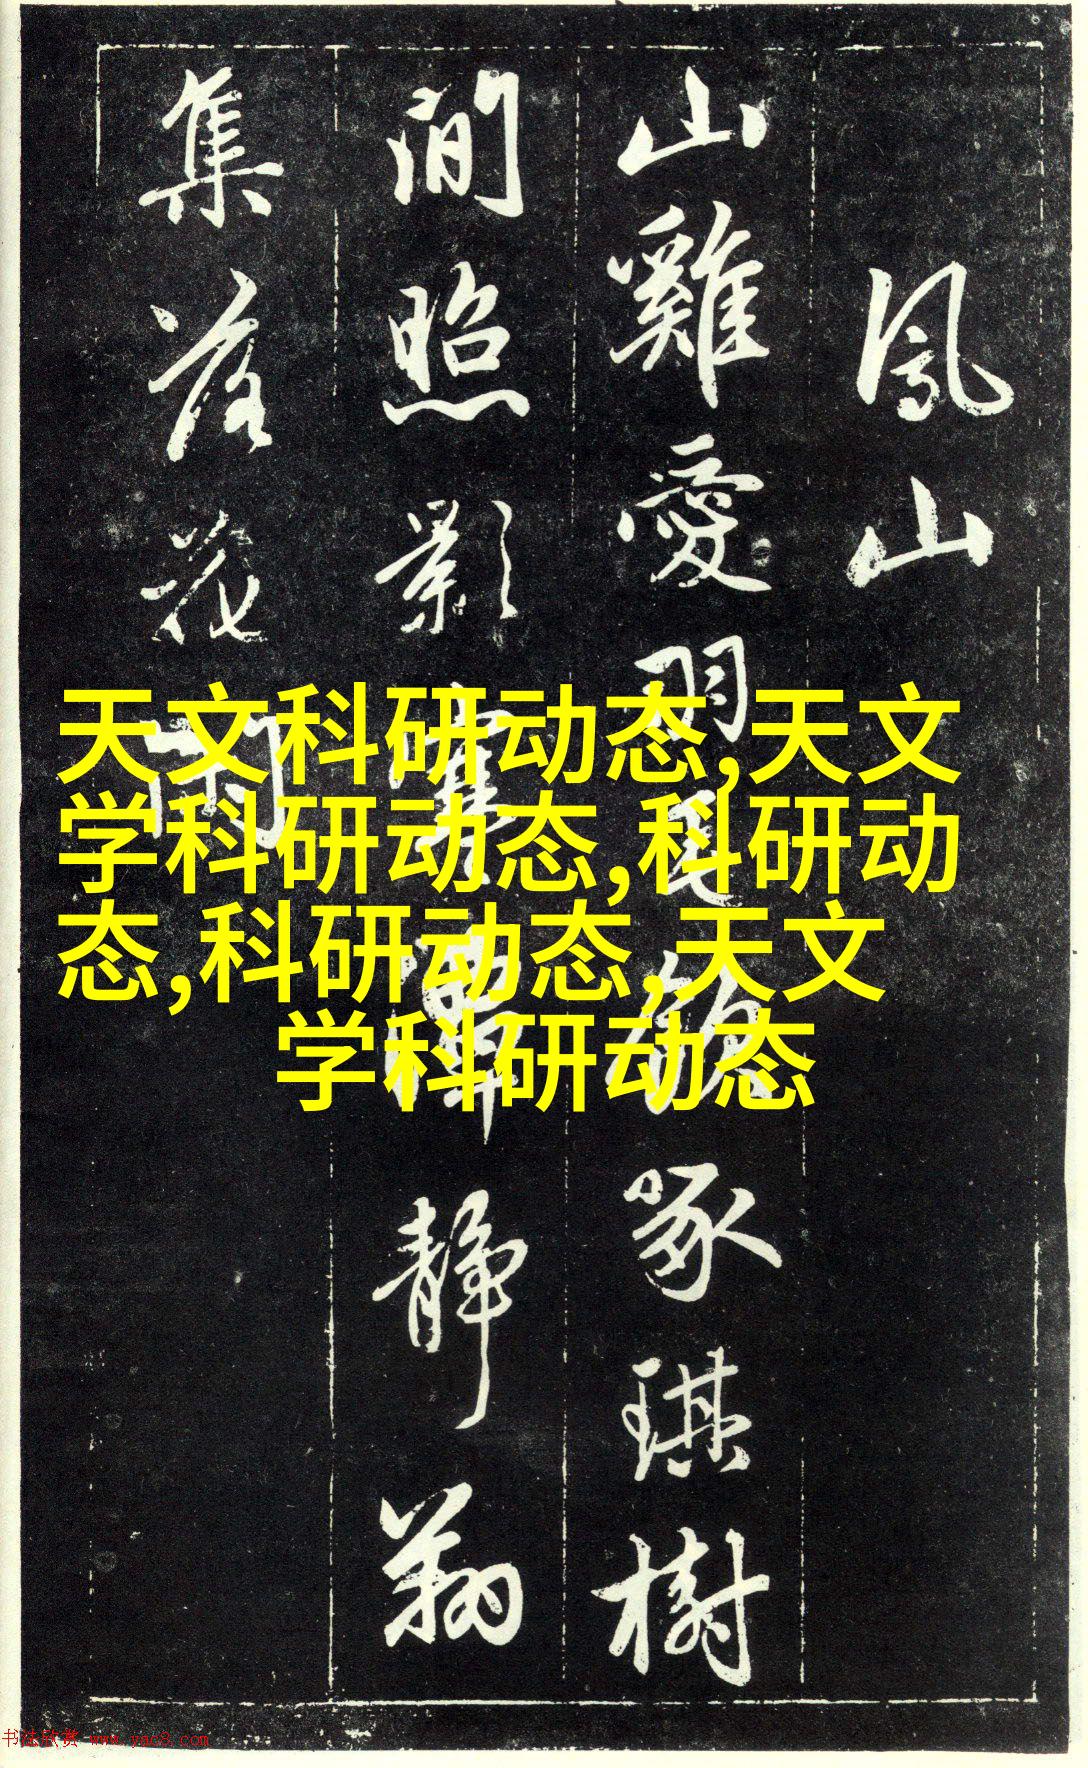 鳳山
山雞愛羽毛飲啄琪樹
間照影寒潭靜翔
集落花
天文科研动态,天文
学科研动态,科研动
态,科研动态,天文
学科研动态
书法欣赏 www.yac8.com